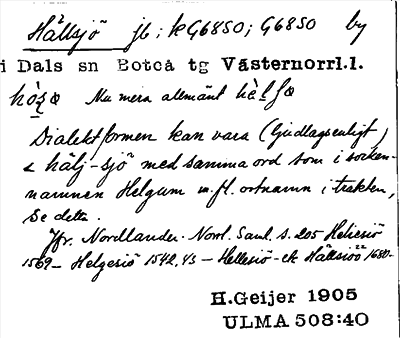 Hällsjö jb; kG6850; G6850 by
i Dals sn Boteå tg Västernorrl.l.
Nu mera allmänt
Dialektformen kan vara (ljudlagsenligt)
< hälj-sjö med samma ord som i socken-
namnen Helgum m. fl. ortnamn i trakten,
se detta.
Jfr. Nordlander. Norrl. Saml. s. 205 Heliesiö
1569 – Helgesiö 1542, 43 – Hellesiö – ck Hällsiöö 1680 -
H.Geijer 1905
ULMA 508:40